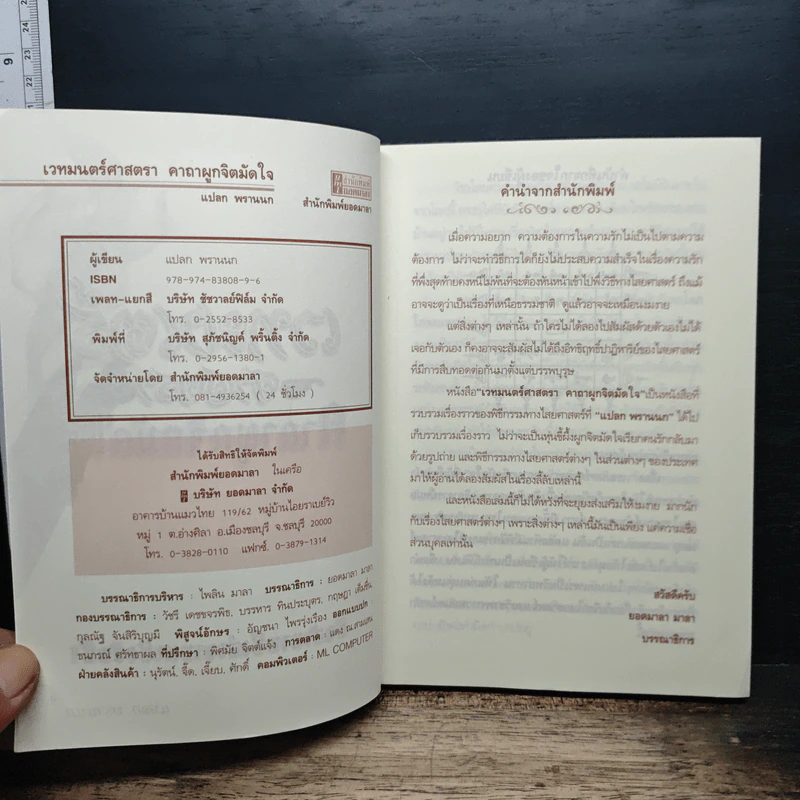 เวทมนตร์ศาสตรา คาถาผูกจิตมัดใจ
แปลก พรานนก
สำนักพิมพ์ยอดมาลา
ผู้เขียน แปลก พรานนก
ISBN 978-974-83808-9-6
เพลท-แยกสี บริษัท ชัชวาลย์ฟิล์ม จำกัด
โทร. 0-2552-8533
พิมพ์ที่ บริษัท สุภัชนิญค์ พริ้นติ้ง จำกัด
โทร. 0-2956-1380-1
จัดจำหน่ายโดย สำนักพิมพ์ยอดมาลา
โทร. 081-4936254 ( 24 ชั่วโมง )
ได้รับสิทธิให้จัดพิมพ์
สำนักพิมพ์ยอดมาลา ในเครือ
บริษัท ยอดมาลา จำกัด
อาคารบ้านแมวไทย 119/62 หมู่บ้านไอยราเบย์วิว
หมู่ 1 ต.อ่างศิลา อ.เมืองชลบุรี จ.ชลบุรี 20000
โทร. 0-3828-0110 แฟกซ์. 0-3879-1314
บรรณาธิการบริหาร : ไพลิน มาลา บรรณาธิการ : ยอดมาลา มาลา
กองบรรณาธิการ : วัชรี เดชขจรพิธ, บรรหาร ทินประบุตร, กฤษฎา เต็มชื่น
กุลณัฐ จันสิริบุญมี พิสูจน์อักษร : อัญชนา ไพรรุ่งเรือง ออกแบบปก
ธนภรณ์ ศรัทธาผล ที่ปรึกษา : พิศมัย จิตต์แจ้ง การตลาด : แดง ณ.สามแสน
ฝ่ายคลังสินค้า : นุรัตน์, จี๊ด, เจี๊ยบ, ศักดิ์ คอมพิวเตอร์ : ML COMPUTER
9
24
23
22
21
คำนำจากสำนักพิมพ์
เมื่อความอยาก ความต้องการในความรักไม่เป็นไปตามความ
ต้องการ ไม่ว่าจะทำวิธีการใดก็ยังไม่ประสบความสำเร็จในเรื่องความรัก
ที่พึ่งสุดท้ายคงหนีไม่พ้นที่จะต้องหันหน้าเข้าไปพึ่งวิธีทางไสยศาสตร์ ถึงแม้
อาจจะดูว่าเป็นเรื่องที่เหนือธรรมชาติ ดูแล้วอาจจะเหมือนงมงาย
แต่สิ่งต่างๆ เหล่านั้น ถ้าใครไม่ได้ลองไปสัมผัสด้วยตัวเองไม่ได้
เจอกับตัวเอง ก็คงอาจจะสัมผัสไม่ได้ถึงอิทธิฤทธิ์ปาฏิหาริย์ของไสยศาสตร์
ที่มีการสืบทอดต่อกันมาตั้งแต่บรรพบุรุษ
หนังสือ"เวทมนตร์ศาสตรา คาถาผูกจิตมัดใจ"เป็นหนังสือที่
รวบรวมเรื่องราวของพิธีกรรมทางไสยศาสตร์ที่ "แปลก พรานนก" ได้ไป
เก็บรวบรวมเรื่องราว ไม่ว่าจะเป็นหุ่นขี้ผึ้งผูกจิตมัดใจเรียกคนรักกลับมา
ด้วยรูปถ่าย และพิธีกรรมทางไสยศาสตร์ต่างๆ ในส่วนต่างๆ ของประเทศ
มาให้ผู้อ่านได้ลองสัมผัสในเรื่องลี้ลับเหล่านี้
และหนังสือเล่มนี้ก็ไม่ได้หวังที่จะยุยงส่งเสริมให้งมงาย มากนัก
กับเรื่องไสยศาสตร์ต่างๆ เพราะสิ่งต่างๆ เหล่านี้มันเป็นเพียง แค่ความเชื่อ
ส่วนบุคลเท่านั้น
สวัสดีครับ
ยอดมาลา มาลา
บรรณาธิการ